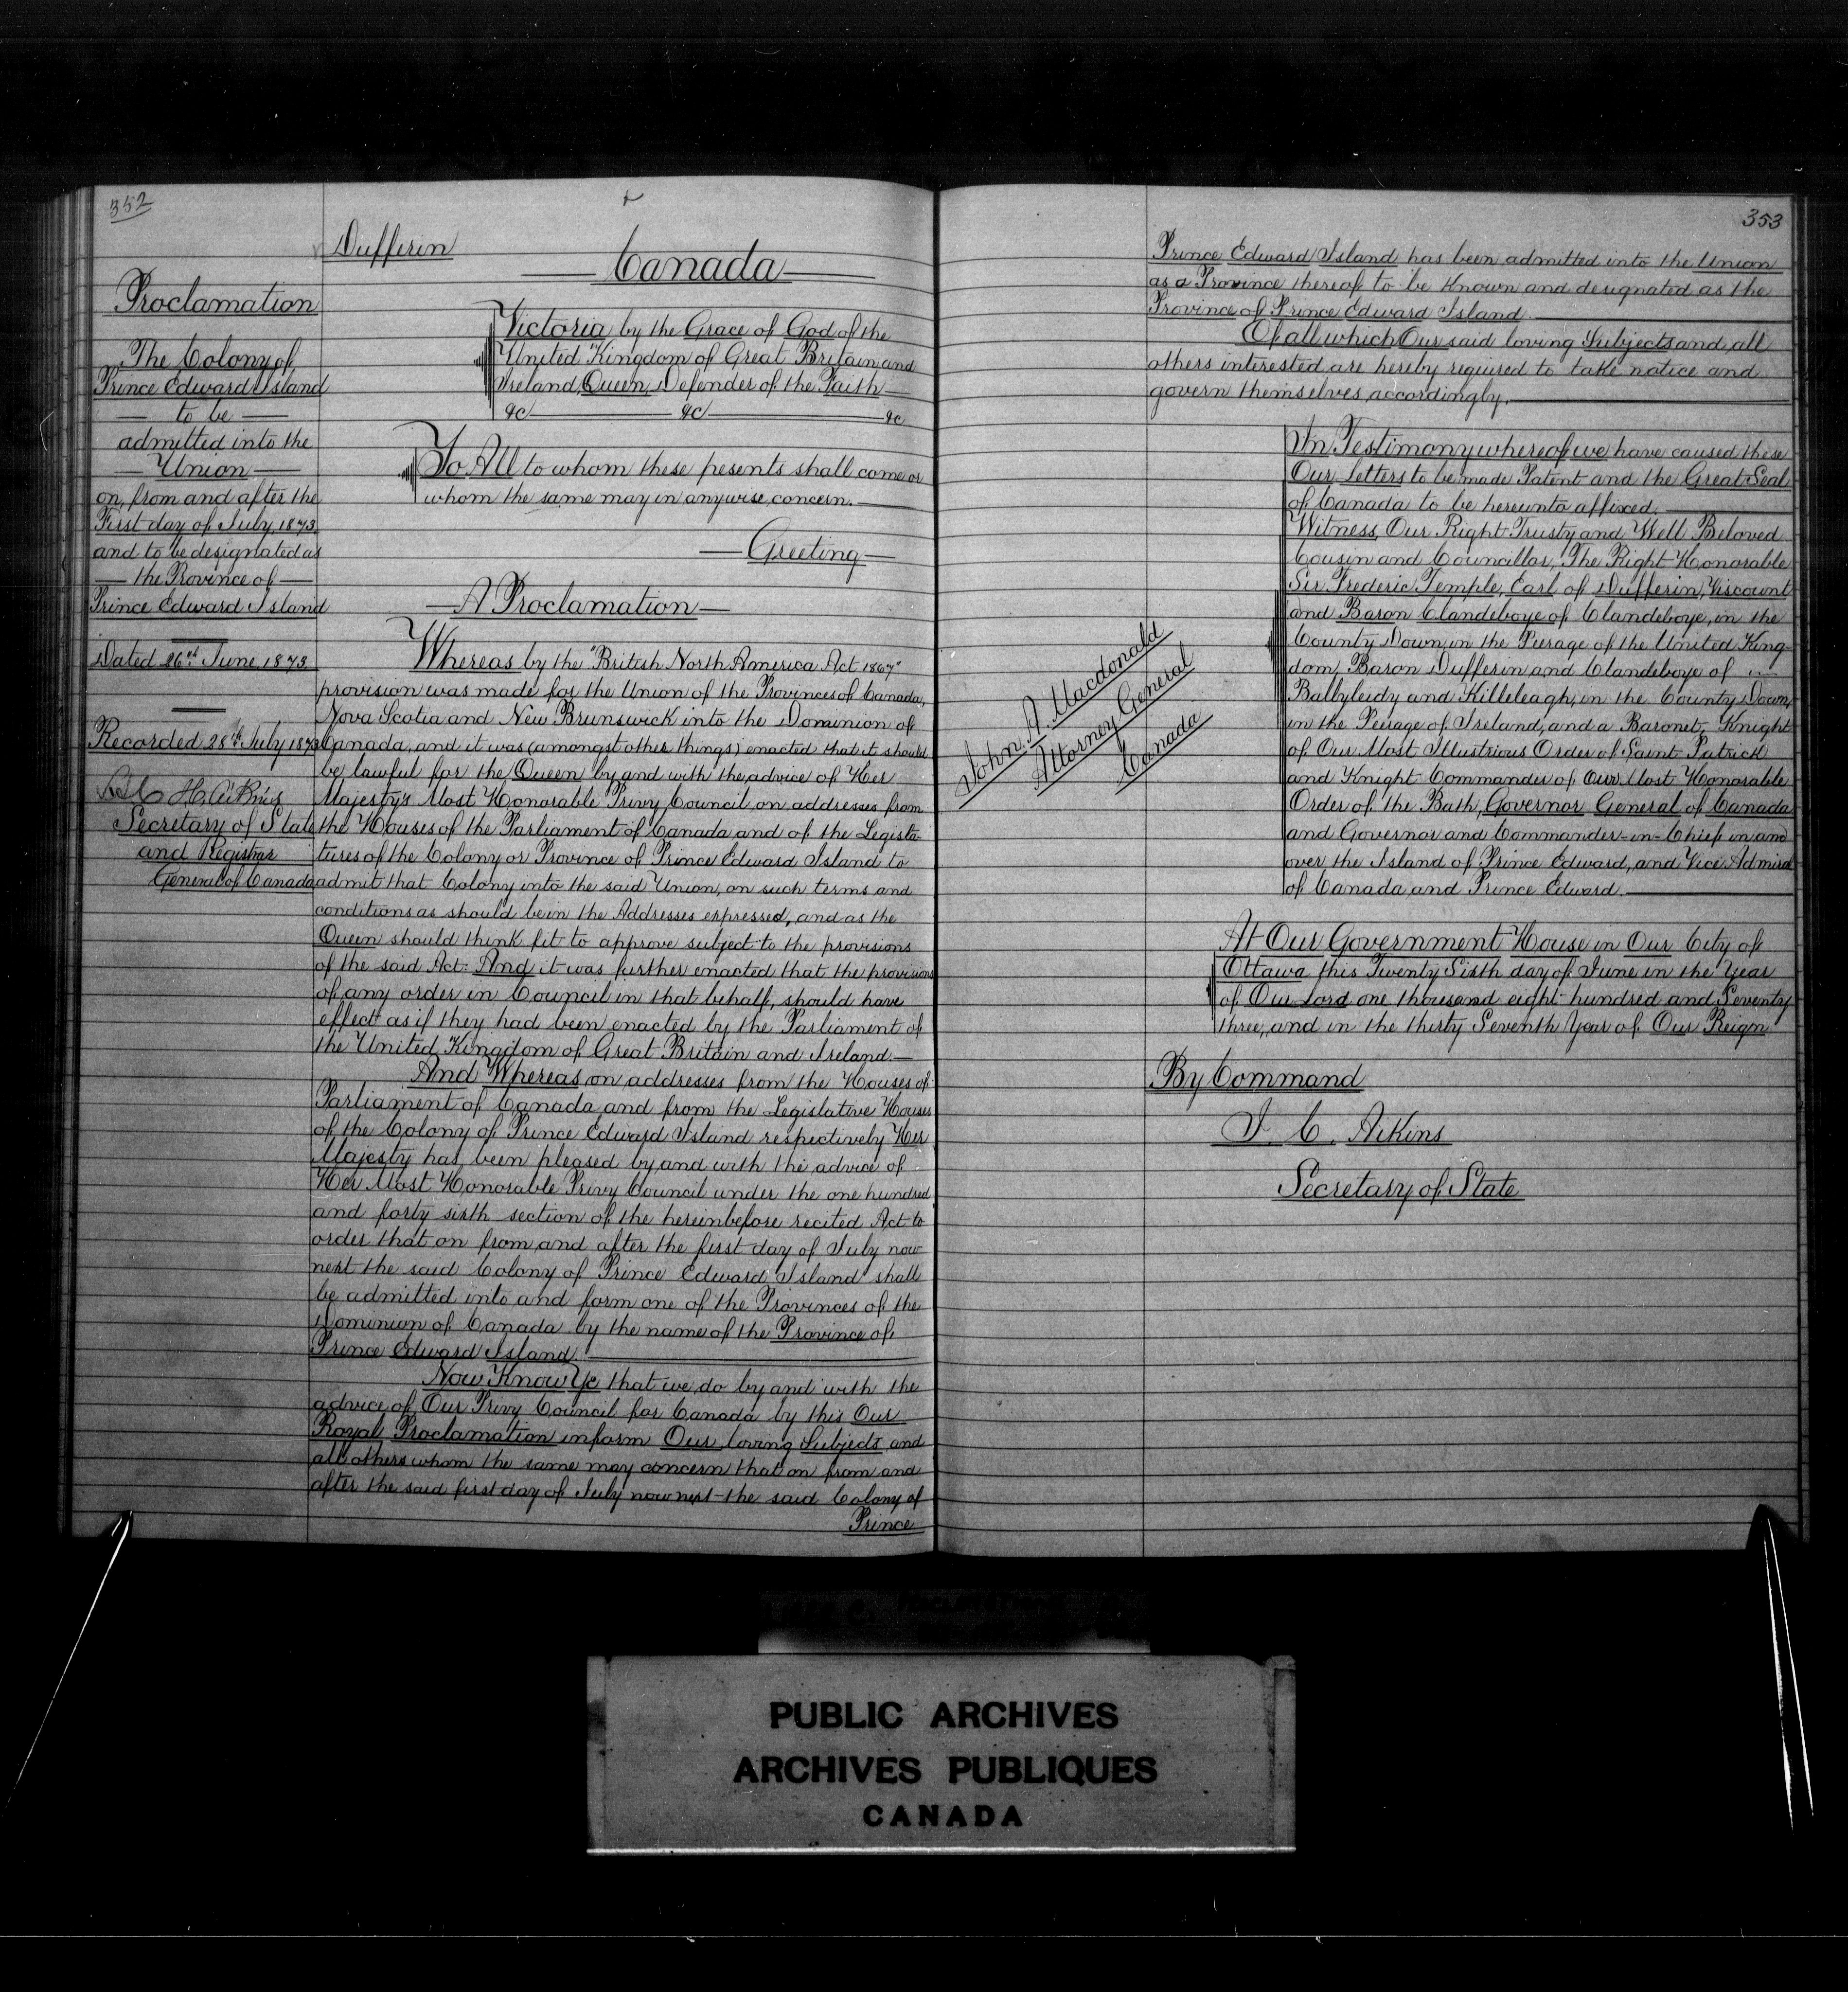 352
Dufferin
Canada
Proclamation
The Colony of
Prince Edward Island
to be
admitted into the
Union
on, from and after the
First day of July, 1873
and to be designated as
the Province of
Prince Edward Island
Dated 26th June 1873
Recorded 28th July 1873
Secretary of State
and Registrar
General of Canada
Victoria by the Grace of God of the
United Kingdom of Great Britain and
Ireland, Queen, Defender of the Faith
&c &c &c
To All to whom these pesents shall come or
whom the same may in anywise concern.
Greeting
A Proclamation
Whereas by the "British North America Act 1867"
provision was made for the Union of the Provinces of Canada,
Nova Scotia and New Brunswick into the Dominion of
Canada, and it was (amongst other things) enacted that it should
be lawful for the Queen by and with the advice of Her
Majesty's Most Honorable Privy Council on addresses from
the Houses of the Parliament of Canada and of the Legisla-
tures of the Colony or Province of Prince Edward Island to
admit that Colony into the said Union, on such terms and
conditions as should be in the Addresses expressed, and as the
Queen should think fit to approve subject to the provisions
of the said Act: And it was further enacted that the provisions
of any order in Council in that behalf, should have
effect as if they had been enacted by the Parliament of
the United Kingdom of Great Britain and Ireland.
And Whereas on addresses from the Houses of
Parliament of Canada and from the Legislative Houses
of the Colony of Prince Edward Island respectively Her
Majesty has been pleased by and with the advice of
Her Most Honorable Privy Council under the one hundred
and forty sixth section of the hereinbefore recited Act to
order that on from and after the first day of July now
next the said Colony of Prince Edward Island shall
be admitted into and form one of the Provinces of the
Dominion of Canada by the name of the Province of
Prince Edward Island.
Now Know Ye that we do by and with the
advice of Our Privy Council for Canada by this Our
Royal Proclamation inform Our loving Subjects and
all others whom the same may concern that on from and
after the said first day of July now next the said Colony of
Prince
353
Prince Edward Island has been admitted into the Union
as a Province thereof to be Known and designated as the
Province of Prince Edward Island.
Of all which Our said loving Subjects and all
others interested are hereby required to take notice and
govern themselves accordingly.
In Testimony whereof we have caused these
Our Letters to be made Patent and the Great Seal
of Canada to be hereunto affixed.
Witness, Our Right Trusty and Well Beloved
Cousin and Councillor, The Right Honorable
Sir Frederic Temple, Earl of Dufferin, Viscount
and Baron Clandeboye of Clandeboye, in the
County Down, in the Peerage of the United King-
dom, Baron Dufferin and Clandeboye of
Ballyleidy and Killeleagh, in the County Down,
in the Peerage of Ireland, and a Baronet, Knight
of Our Most Illustrious Order of Saint Patrick
and Knight Commander of Our Most Honorable
Order of the Bath, Governor General of Canada
and Governor and Commander-in-Chief in and
over the Island of Prince Edward, and Vice Admiral
of Canada and Prince Edward.
John. A. Macdonald
Attorney General
Canada
At Our Government House in Our City of
Ottawa this Twenty Sixth day of June in the Year
of Our Lord one thousand eight hundred and Seventy
three, and in the thirty Seventh Year of Our Reign
By Command
J. C. Aikins
Secretary of State
PUBLIC ARCHIVES
ARCHIVES PUBLIQUES
CANADA